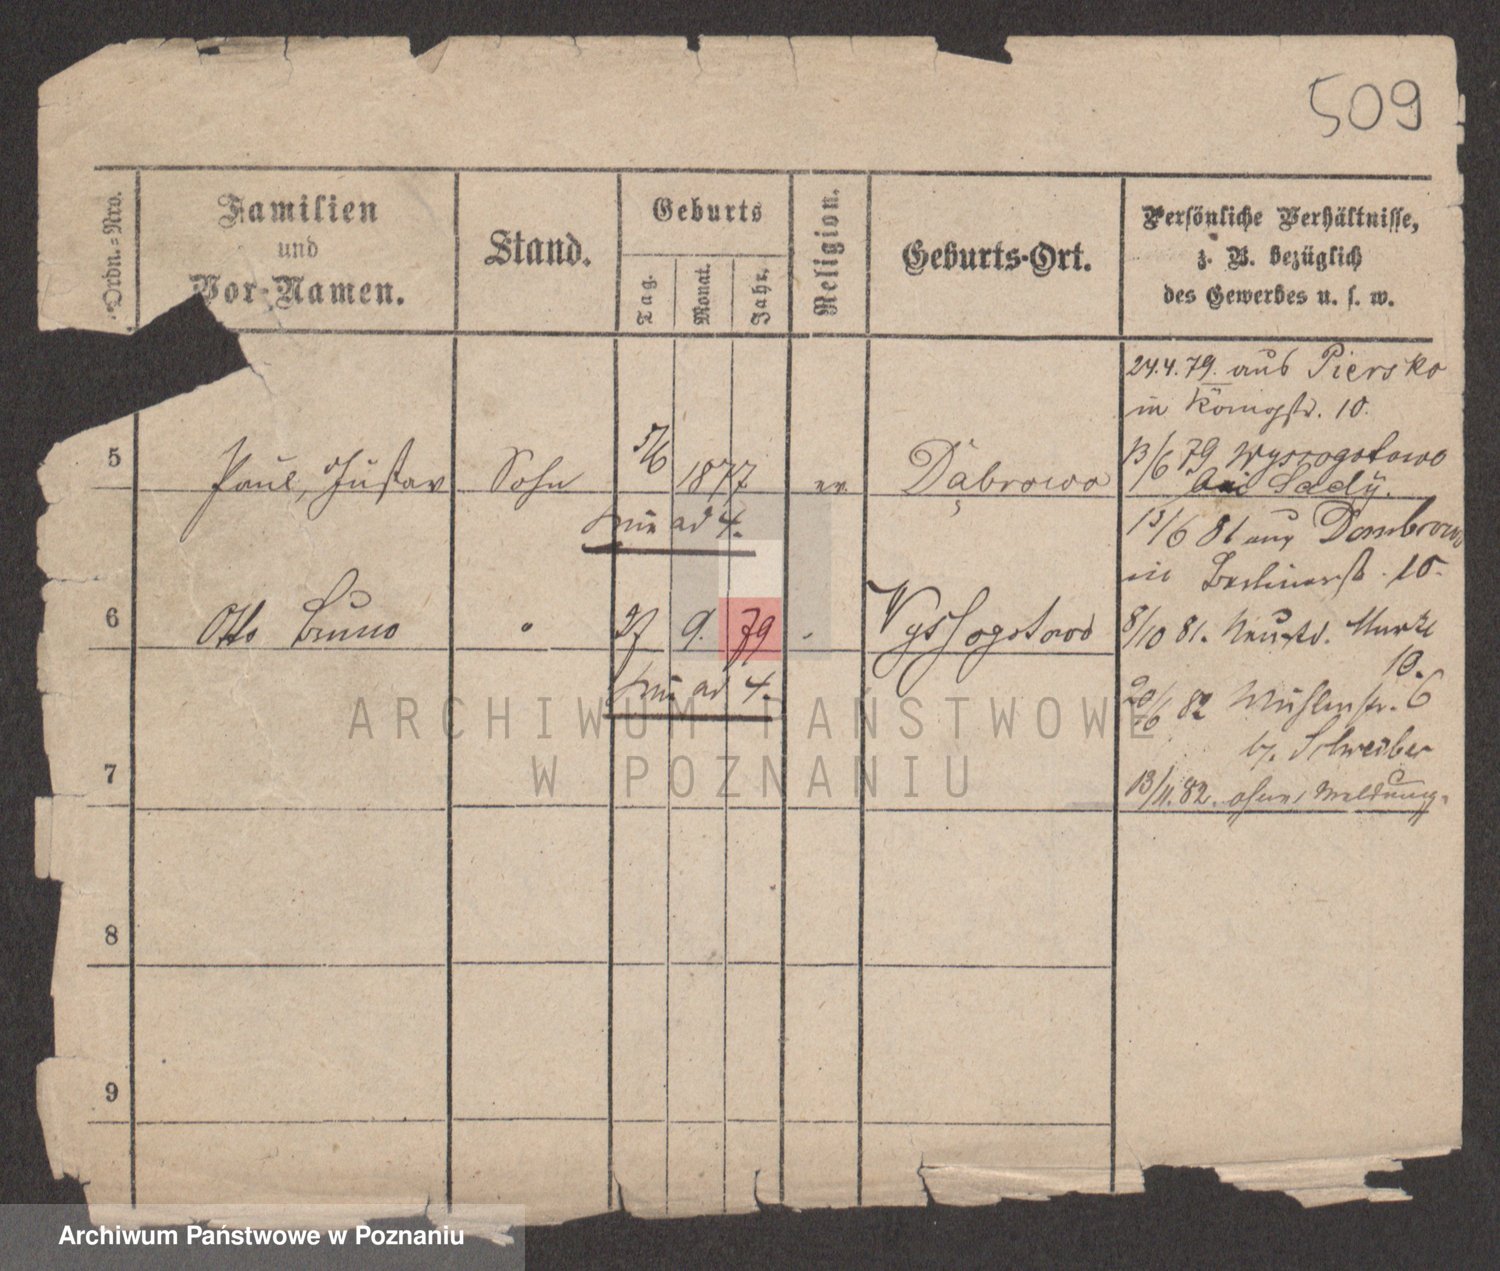 509
Ordn.-Nro.
Familien
und
Vor-Namen.
Stand.
Geburts
Tag.
Monat.
Jahr.
Religion.
Geburts-Ort.
Persönliche Verhältnisse,
z. B. bezüglich
des Gewerbes u. s. w.
24.4.79. aus Piersko
in Königstr. 10.
5 Paul, Gustav Sohn 5/6 1877 ev. Dąbrowo
13/6 79 Wyssogotowo
bei Sady.
wie ad 4.
13/6 81 aus Dombrowo
in Berlinerstr. 10.
6 Otto Bruno " 27 9. 79 - Wyssogotowo
8/10 81. Neustd. Markt
10.
wie ad 4.
20/6 82 Mühlenstr. 6
b. Schreiber
7
13/11.82. ohne Meldung.
8
9
ARCHIWUM PAŃSTWOWE
W POZNANIU
Archiwum Państwowe w Poznaniu